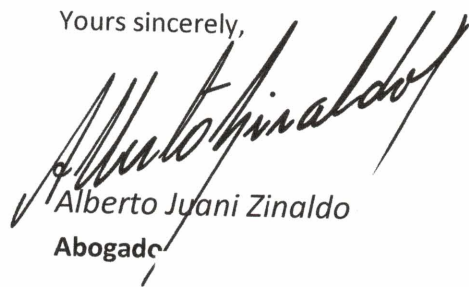 Yours sincerely,
Alberto Zinaldo
Alberto Juani Zinaldo
Abogado